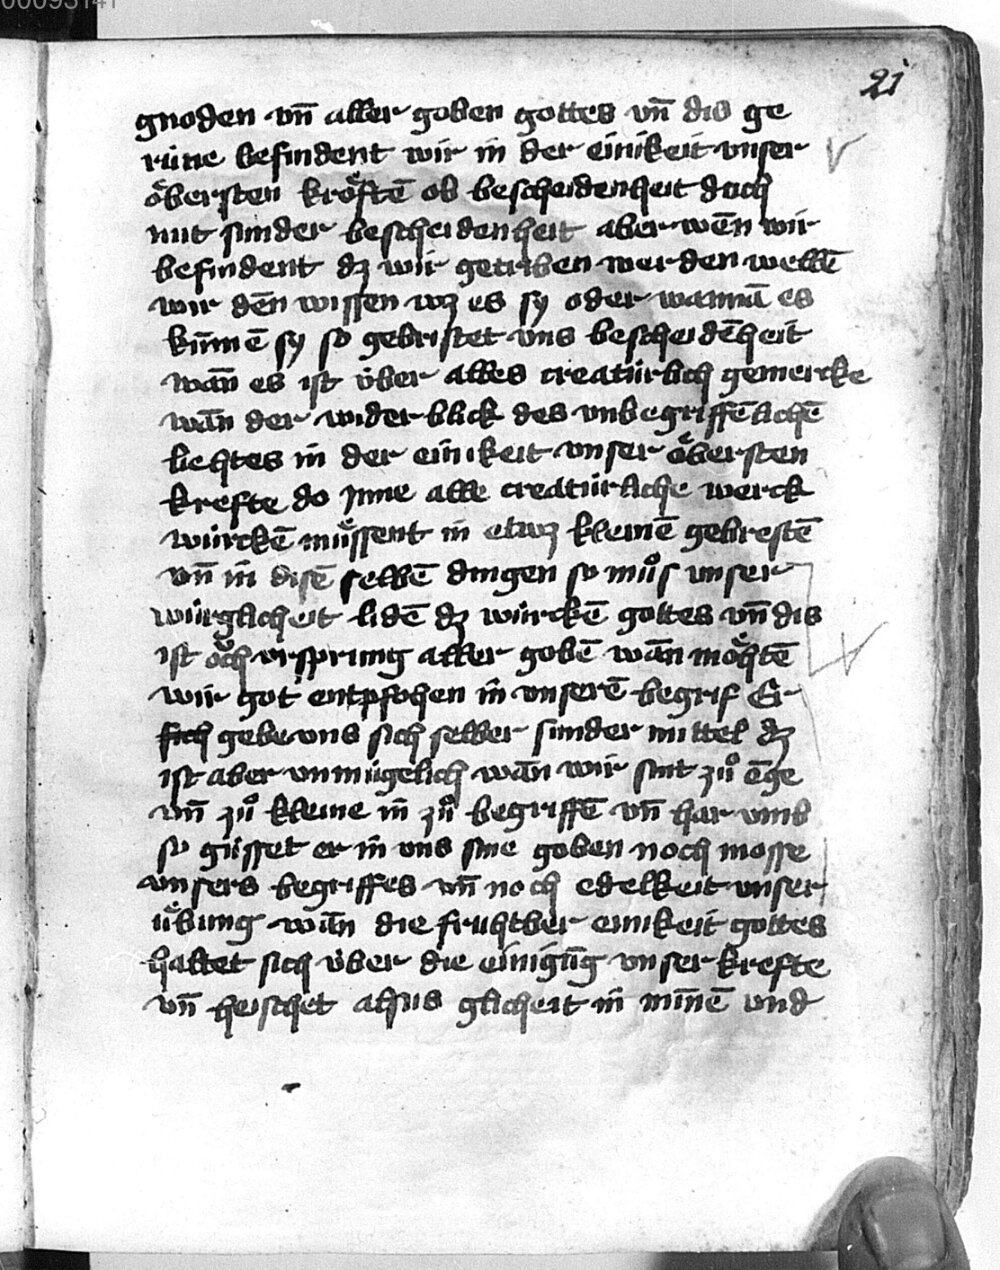 00093141
21
gnoden vn̄ aller goben gottes vn̄ dis ge
rúne befindent wir in der einikeit vnser
oͤbersten kroͤftē ob bescheidenheit doch
nut sunder bescheidenheit aber wēn wir
befindent dz wir getriben werden wellē
wir dēn wissen wz es sy oder wannā es
kūmē sy so gebristet vns bescheidēheit
wān es ist úber alles creatúrlich gemercke
wān der widerblick des vnbegriffēlichē
liechtes in der einikeit vnser oͤbersten
krefte do jnne alle creatúrliche werck
wúrckē muͤssent in etwz kleinē gebrestē
vn̄ in disē selbē dingen so muͦs vnser
wúrglicheit lidē dz wúrckē gottes vn̄ dis
ist oͮch vrsprung aller gobē wān moͤhtē
wir got entpfohen in vnserē begrif Er
sich gebe vns sich selber sunder mittel dz
ist aber vnmúgelich wān wir sint zuͦ ēge
vn̄ zuͦ kleine in zuͦ begriffē vn̄ har vmb
so gússet er in vns sine goben noch mosse
vnsers begriffes vn̄ noch edelkeit vnser
uͤbung wān die fruhtber einikeit gottes
haltet sich úber die einigūg vnser krefte
vn̄ heischet alsus glicheit in mīnē vnd